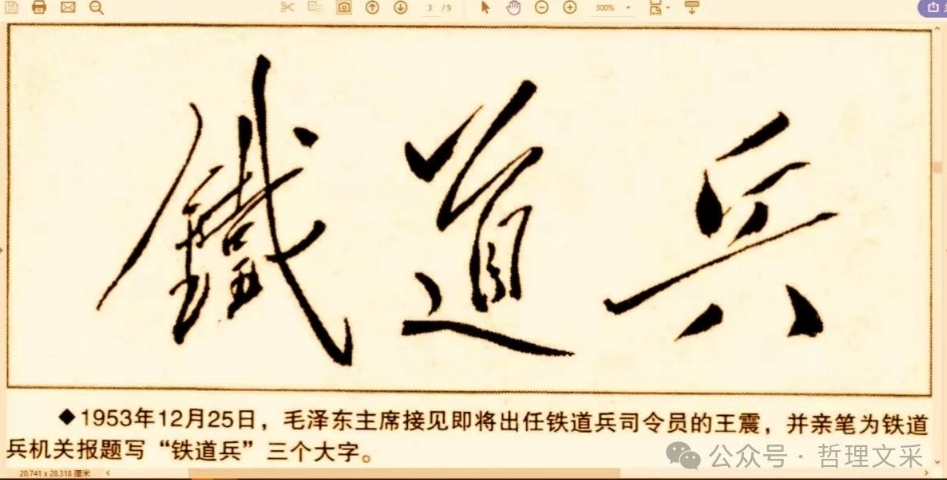 3 / 9
300%
鐵道兵
◆1953年12月25日，毛泽东主席接见即将出任铁道兵司令员的王震，并亲笔为铁道
兵机关报题写“铁道兵”三个大字。
公众号·哲理文采
20.741 x 28.318 厘米